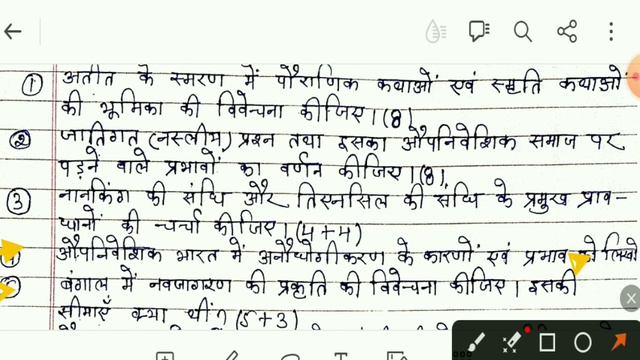 ① अतीत के स्मरण में पौराणिक कथाओं एवं स्मृति कथाओं
की भूमिका की विवेचना कीजिए।(8)
② जातिगत (नस्लीय) प्रश्न तथा इसका औपनिवेशिक समाज पर
पड़ने वाले प्रभावों का वर्णन कीजिए।(8)
③ नानकिंग की संधि और तिएनसिल की संधि के प्रमुख प्राव-
धानों की चर्चा कीजिए।(4+4)
औपनिवेशिक भारत में अनौद्योगीकरण के कारणों एवं प्रभाव को लिखो
बंगाल में नवजागरण की प्रकृति की विवेचना कीजिए। इसकी
सीमाएँ क्या थीं? (5+3)